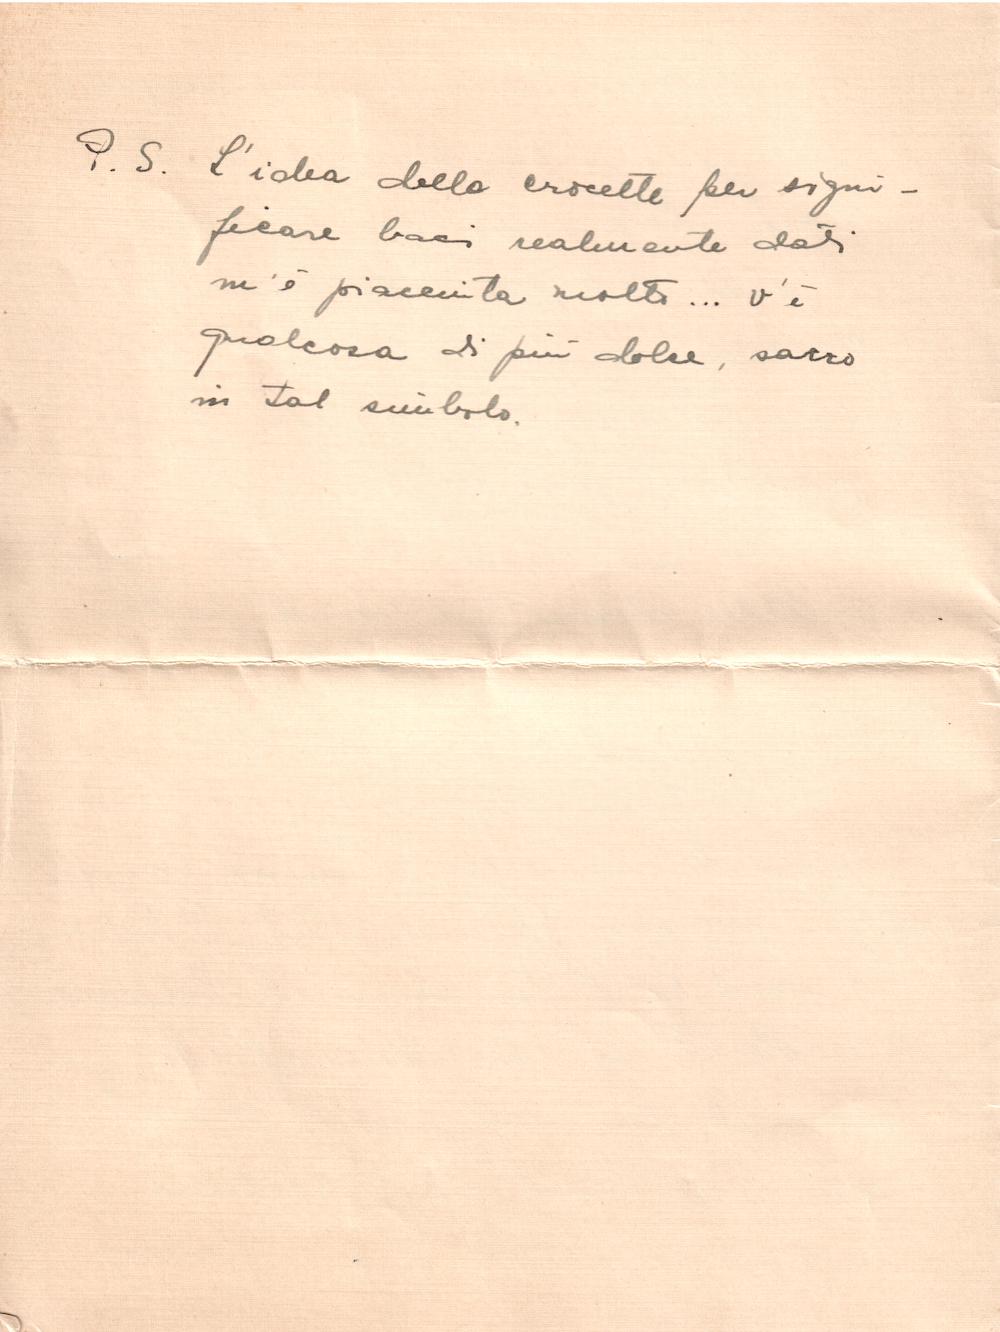 P. S. L'idea della crocette per signi-
ficare baci realmente dati
m'è piaciuta molto... v'è
qualcosa di più dolce, sacro
in tal simbolo.